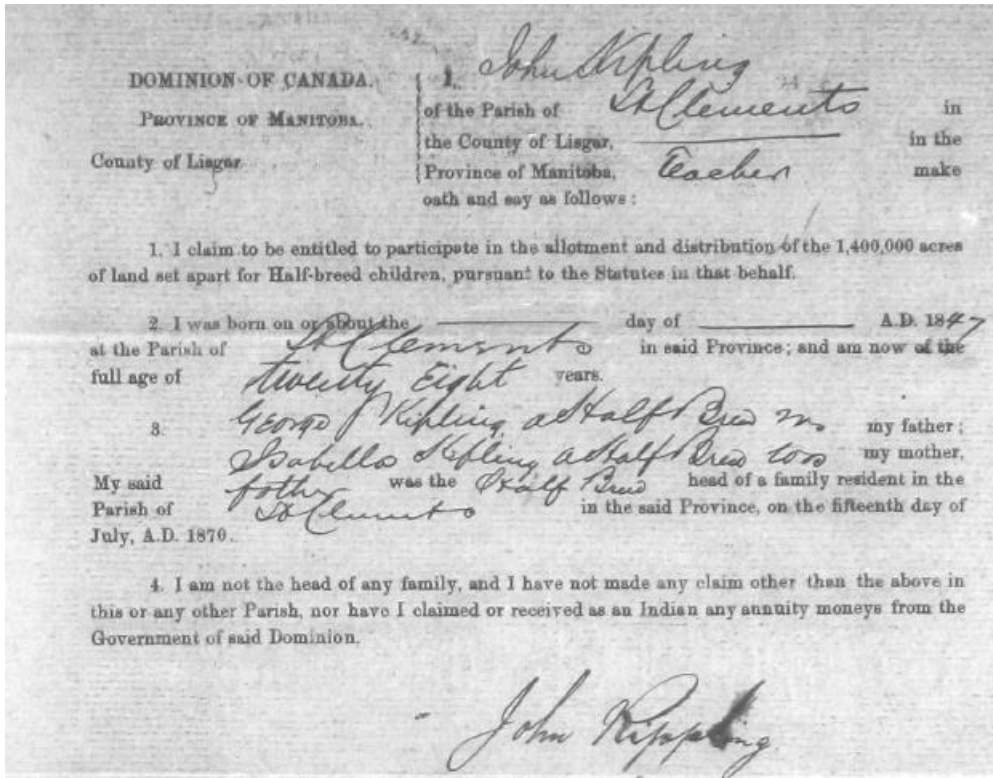 DOMINION OF CANADA.
PROVINCE OF MANITOBA.
County of Lisgar
I, John Kipling
of the Parish of St Clements in
the County of Lisgar, in the
Province of Manitoba, Teacher make
oath and say as follows:
1. I claim to be entitled to participate in the allotment and distribution of the 1,400,000 acres
of land set apart for Half-breed children, pursuant to the Statutes in that behalf.
2. I was born on or about the day of A.D. 1847
at the Parish of St Clements in said Province; and am now of the
full age of twenty Eight years.
3. George Kipling a Half Breed my father;
Isabella Kipling a Half Breed my mother,
My said father was the Half Breed head of a family resident in the
Parish of St Clements in the said Province, on the fifteenth day of
July, A.D. 1870.
4. I am not the head of any family, and I have not made any claim other than the above in
this or any other Parish, nor have I claimed or received as an Indian any annuity moneys from the
Government of said Dominion.
John Kippling